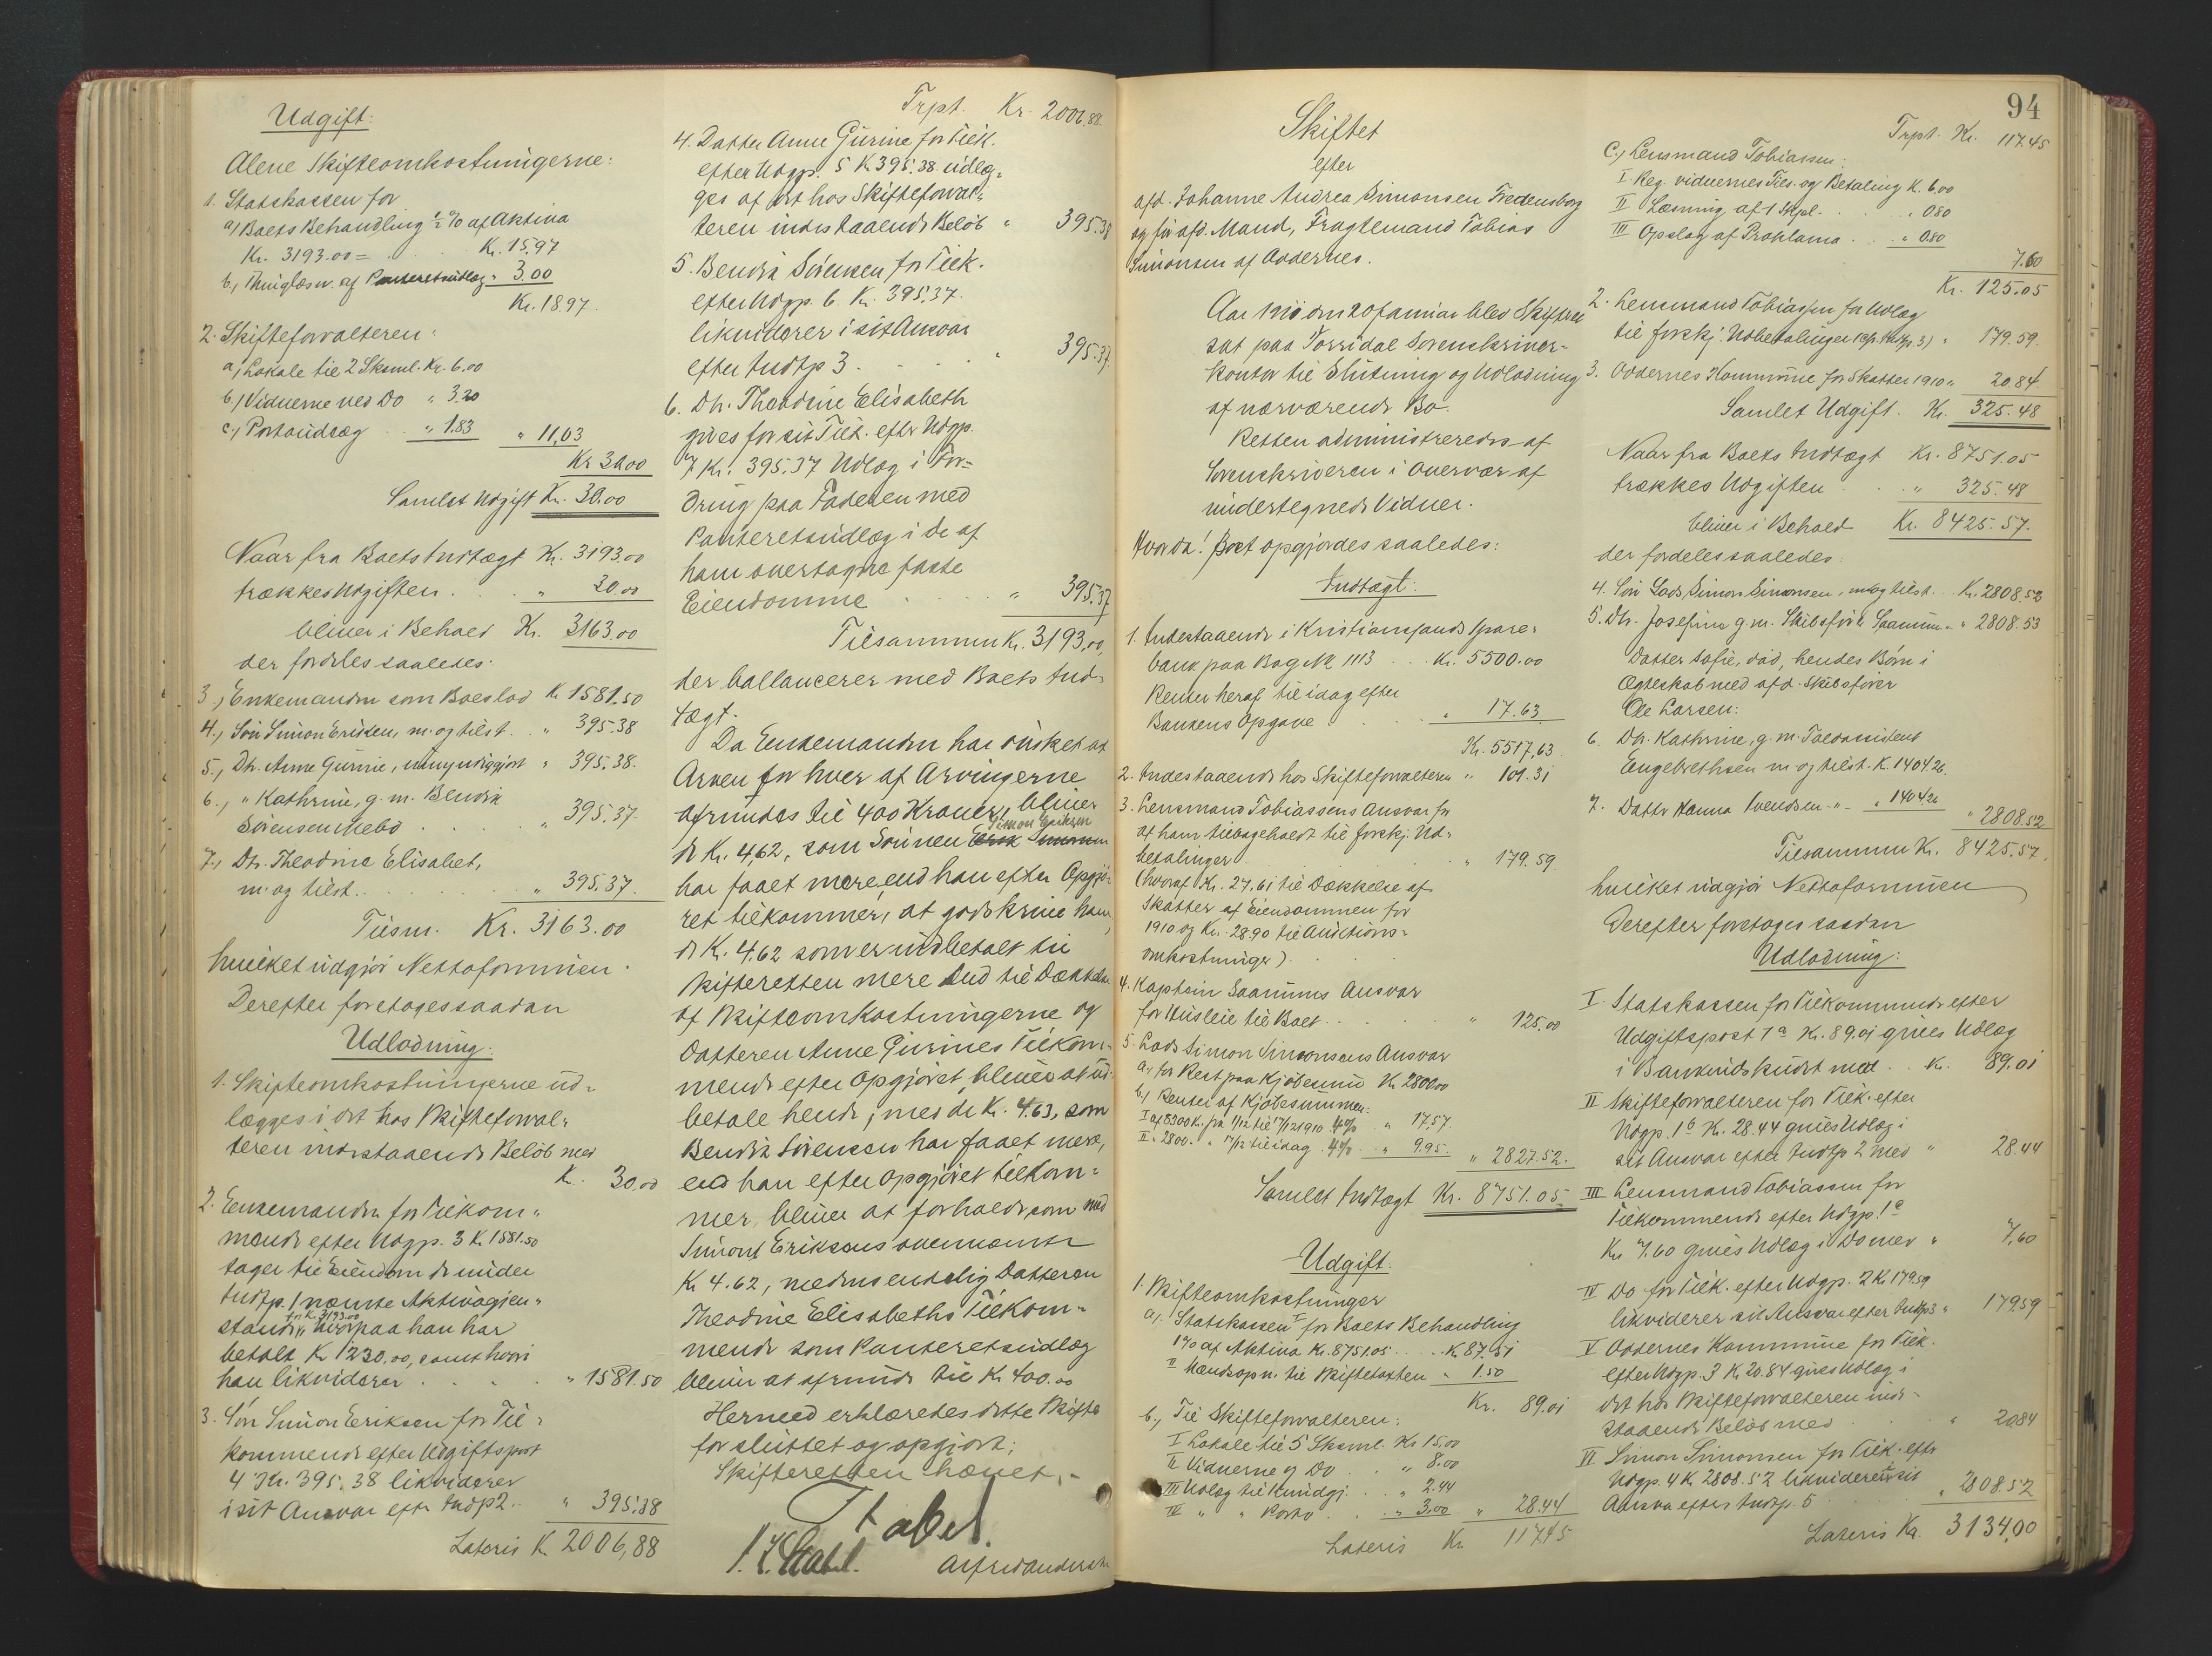 Udgift:
Alene Skifteomkostningerne:
1. Statskassen for
a) Boets Behandling ½ % af Aktiva
Kr. 3193.00 = . . Kr. 15.97
b, Thinglæsn. af Panteretsudlæg " 3.00
Kr. 18.97.
2. Skifteforvalteren:
a, Lokale til 2 Skaml. Kr. 6.00
b, Vidnerne ved Do " 3.20
c, Portoudlæg . . " 1.83 " 11,03
Kr 30.00
Samlet Udgift Kr. 30.00
Naar fra Boets Indtægt Kr. 3193.00
trækkes Udgiften . . " 30.00
bliver i Behold Kr. 3163.00
der fordeles saaledes:
3, Enkemanden som Boeslod Kr 1581.50
4., Søn Simon Eriksen, m. og tilst. . " 395.38
5., Dtr. Anne Gurine, umyndiggjort " 395.38.
6., " Kathrine, g. m. Bendik
Sørensen Mebø . . " 395.37.
7., Dtr. Theodine Elisabet,
m. og tilst. . . " 395.37.
Tilsm. Kr. 3163.00
hvilket udgjør Nettoformuen.
Derefter foretoges saadan
Udlodning:
1. Skifteomkostningerne ud-
lægges i det hos Skifteforval-
teren indestaaende Beløb med
Kr. 30,00
2. Enkemanden for Tilkom-
mende efter Udgp. 3 Kr 1581.50
tager til Eiendom de under
Indtp. 1 nævnte Aktivagjen-
for Kr. 3193.00
stande, hvorpaa han har
betalt Kr 1230,00, samt hvori
han likviderer . . . " 1581.50
3. Søn Simon Eriksen for Til-
kommende efter Udgiftspost
4 Kr. 395.38 likviderer
i sit Ansvar eftr Indtp 2. . " 395.38
Lateris Kr 2006,88
Trpt. Kr. 2006,88.
4. Datter Anne Gurine for Tilk.
efter Udgp. 5 Kr 395.38 udlæg-
ges af det hos Skifteforval-
teren indestaaende Beløb " 395.38
5. Bendik Sørensen for Tilk.
efter Udgp. 6. Kr. 395.37.
likviderer i sit Ansvar
efter Indtp 3 . . . " 395.37.
6. Dtr. Theodine Elisabeth
gives for sit Tilk. efter Udgp.
7 Kr. 395.37 Udlæg i For-
dring paa Faderen med
Panteretsudlæg i de af
ham overtagne faste
Eiendomme . . . " 395.37
Tilsammen Kr. 3193,00,
der ballancerer med Boets Ind-
tægt.
Da Enkemanden har ønsket at
Arven for hver af Arvingerne
afrundes til 400 Kroner, bliver
Simon Eriksen
de Kr. 4,62, som Sønnen Erik Simonsen
har faaet mere end han efter Opgjø-
ret tilkommer, at godskrive ham,
de Kr. 4.62 som er indbetalt til
Skifteretten mere end til Dækkelse
af Skifteomkostningerne og
Datteren Anne Gurines Tilkom-
mende efter Opgjøret, bliver at ud-
betale hende, mens de Kr. 4.63, som
Bendik Sørensen har faaet mere,
end han efter Opgjøret tilkom-
mer, bliver at forholde som med
Simon Eriksens ovennævnte
Kr 4.62, medens endelig Datteren
Theodine Elisabeths Tilkom-
mende som Panteretsudlæg
bliver at afrunde til Kr 400.00
Hermed erklæredes dette Skifte
for sluttet og opgjort;
Skifteretten hævet. -
Stabel.
Stabel. Alfred Andersen
94
Skiftet
efter
afd. Johanne Andrea Simonsen Fredensborg
og før afd. Mand, Fragtemand Tobias
Simonsen af Oddernes.
Aar 1910 den 20 januar blev Skifteret
sat paa Torridal Sorenskriver-
kontor til Slutning og Udlodning
af nærværende Bo.
Retten administreredes af
Sorenskriveren i Overvær af
undertegnede Vidner.
Hvorda! Boet opgjordes saaledes:
Indtægt:
1. Indestaaende i Kristiansands Spare-
bank paa Bog No 1113 . . . Kr. 5500.00
Renter heraf til idag efter
Bankens Opgave . . . " 17.63
Kr. 5517,63
2. Indestaaende hos Skifteforvalteren " 101.31
3. Lensmand Tobiassens Ansvar for
af ham tilbageholdt til forskj. Ud-
betalinger . . . " 179.59.
(hvoraf Kr. 27.61 til Dækkelse af
Skatter af Eiendommen for
1910 og Kr. 28.90 til Auktions-
omkostninger).
4. Kaptein Saanums Ansvar
for Husleie til Boet . . . " 125,00
5. Lods Simon Simonsens Ansvar
a, for Rest paa Kjøbesum Kr 2800.00
b, Renter af Kjøbesummen:
I af 8300 K. fra 1/12 til 17/12 1910 4% " 17.57.
II " 2800. " 17/12 til idag 4% . . " 9.95. " 2827.52.
Samlet Indtægt Kr. 8751.05
Udgift:
1. Skifteomkostninger
a, Statskassen I for Boets Behandling
1% af Aktiva Kr. 8751.05 . . Kr 87.51
II Mændsopn. til Skiftetaxten " 1.50
Kr. 89.01
b, Til Skifteforvalteren:
I Lokale til 5 Skaml. Kr 15,00
II Vidnerne v Do . . " 8.00
III Udlæg til Kundgj. . . " 2.44
IV " " Porto . . " 3,00 " 28.44
Lateris Kr. 117.45
Trpt. Kr. 117.45
c, Lensmand Tobiassen:
I Reg. vidnernes Tils. og Betaling K. 6.00
II Læsning af 1 Skpl. . . " 0.80
III Opslag af Proklama . . " 0.80
7.60
Kr. 125.05
2. Lensmand Tobiassen for Udlæg
til forskj. Udbetalinger (cfr. Indtp. 3) " 179.59.
3. Oddernes Kommune for Skatter 1910 " 20.84
Samlet Udgift. Kr. 325.48
Naar fra Boets Indtægt Kr. 8751.05
trækkes Udgiften . . " 325.48
bliver i Behold Kr. 8425.57.
der fordeles saaledes:
4. Søn Lods Simon Simonsen, m. og tilst. . Kr. 2808.52
5. Dtr. Josefine g. m. Skibsfører Saanum - " 2808.53
Datter Sofie, død, hendes Børn i
Ægteskab med afd. Skibsfører
Ole Larsen:
6. Dtr. Kathrine, g. m. Toldassistent
Engebrethsen m. og tilst. K. 1404.26.
7. Datter Hanna Svendsen - " - " 1404.26
" 2808.52
Tilsammen Kr. 8425,57,
hvilket udgjør Nettoformuen
Derefter foretoges saadan
Udlodning:
I. Statskassen for Tilkommende efter
Udgiftspost 1a Kr. 89.01 gives Udlæg
i Bankindskudet med . . Kr. 89.01
II Skifteforvalteren for Tilk. efter
Udgp. 1b Kr. 28.44 gives Udlæg i
sit Ansvar efter Indtp 2 med " 28.44
III Lensmand Tobiassen for
Tilkommende efter Udgp. 1c
Kr. 7.60 gives Udlæg i Do med " 7,60
IV Do for Tilk. efter Udgp. 2 Kr 179.59
likviderer sit Ansvar efter Indtp 3 " 179.59
V Oddernes Kommune for Tilk.
efter Udgp. 3 Kr 20.84 gives Udlæg i
det hos Skifteforvalteren inde-
staaende Beløb med . . " 20.84
VI Simon Simonsen for Tilk. eftr
Udgp. 4 Kr 2808.52 likviderer i sit
Ansvar efter Indtp. 5 . . " 2808.52
Lateris Kr. 3134,00